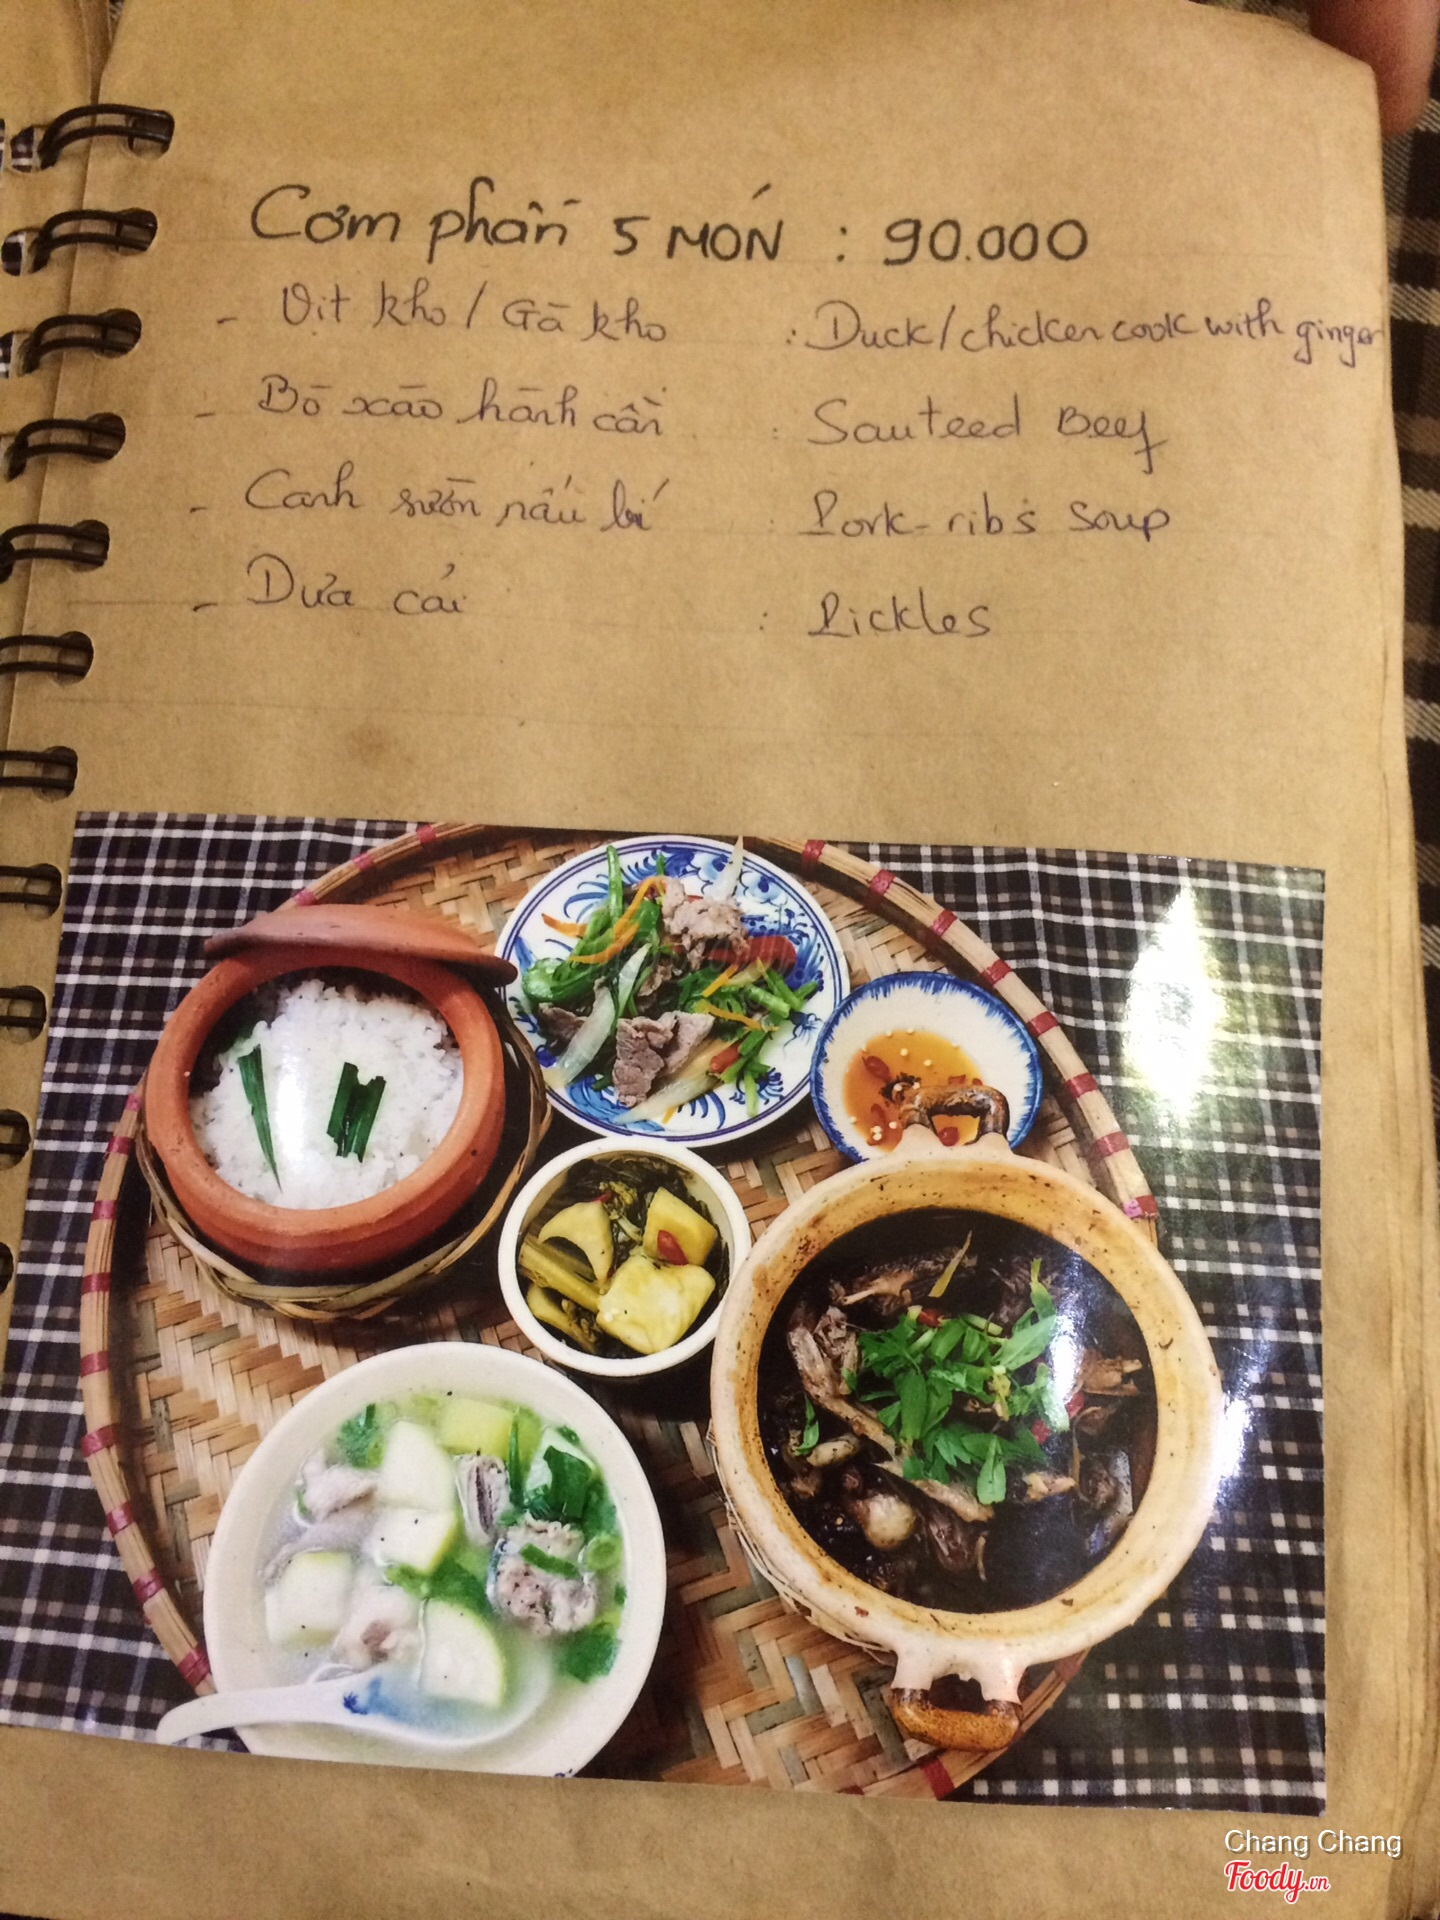 Cơm phần 5 MÓN : 90.000
- Vịt kho / Gà kho : Duck/chicken cook with ginger
- Bò xào hành cần : Sauteed Beef
- Canh sườn nấu bí : Pork-ribs soup
- Dưa cải : Pickles
Chang Chang
Foody.vn